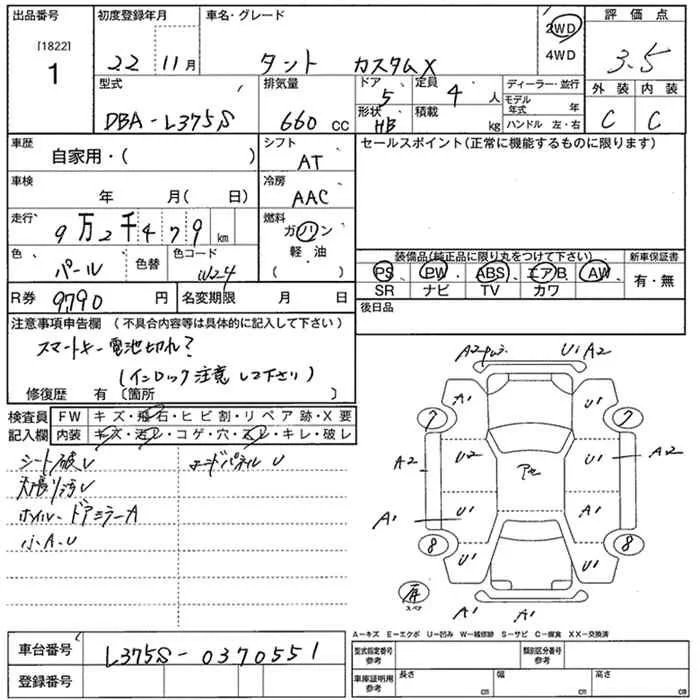 出品番号 初度登録年月 車名・グレード 2WD 評価点
[1822] 4WD
1 22 11月 タント カスタムX 3.5
型式 排気量 ドア 定員 ディーラー・並行 外装 内装
DBA-L375S 660cc 5 4人 モデル年式 年 C C
形状 積載
HB kg ハンドル 左・右
車歴 シフト セールスポイント(正常に機能するものに限ります)
自家用・( ) AT
車検 冷房
年 月( 日) AAC
走行 燃料
9万2千479km ガソリン
軽油
( )
色 色替 色コード 装備品(純正品に限り丸をつけて下さい) 新車保証書
パール W24 PS PW ABS エアB AW 有・無
SR ナビ TV カワ
R券 9790円 名変期限 月 日 後日品
注意事項申告欄 (不具合内容等は具体的に記入して下さい)
スマートキー電池切れ?
(インロック注意して下さい)
修復歴 有 〔箇所 〕
検査員 FW キズ・飛石・ヒビ割・リペア跡・X要
記入欄 内装 キズ・汚レ・コゲ・穴・スレ・キレ・破レ
シート破レ
天張り汚レ
ホイル・ドアミラーA
小A.U
A2 U1 A2
A1 U1
7 7
A2 U2 アセ U1 A2
A1 U1 A1
8 8
U1 U1
スペア
A1 A1
A-キズ E-エクボ U-凹み W-補修跡 S-サビ C-腐食 XX-交換済
車台番号 L375S-0370551
登録番号
型式指定番号 参考 類別区分番号 参考
車庫証明用 参考 長さ cm 幅 cm 高さ cm